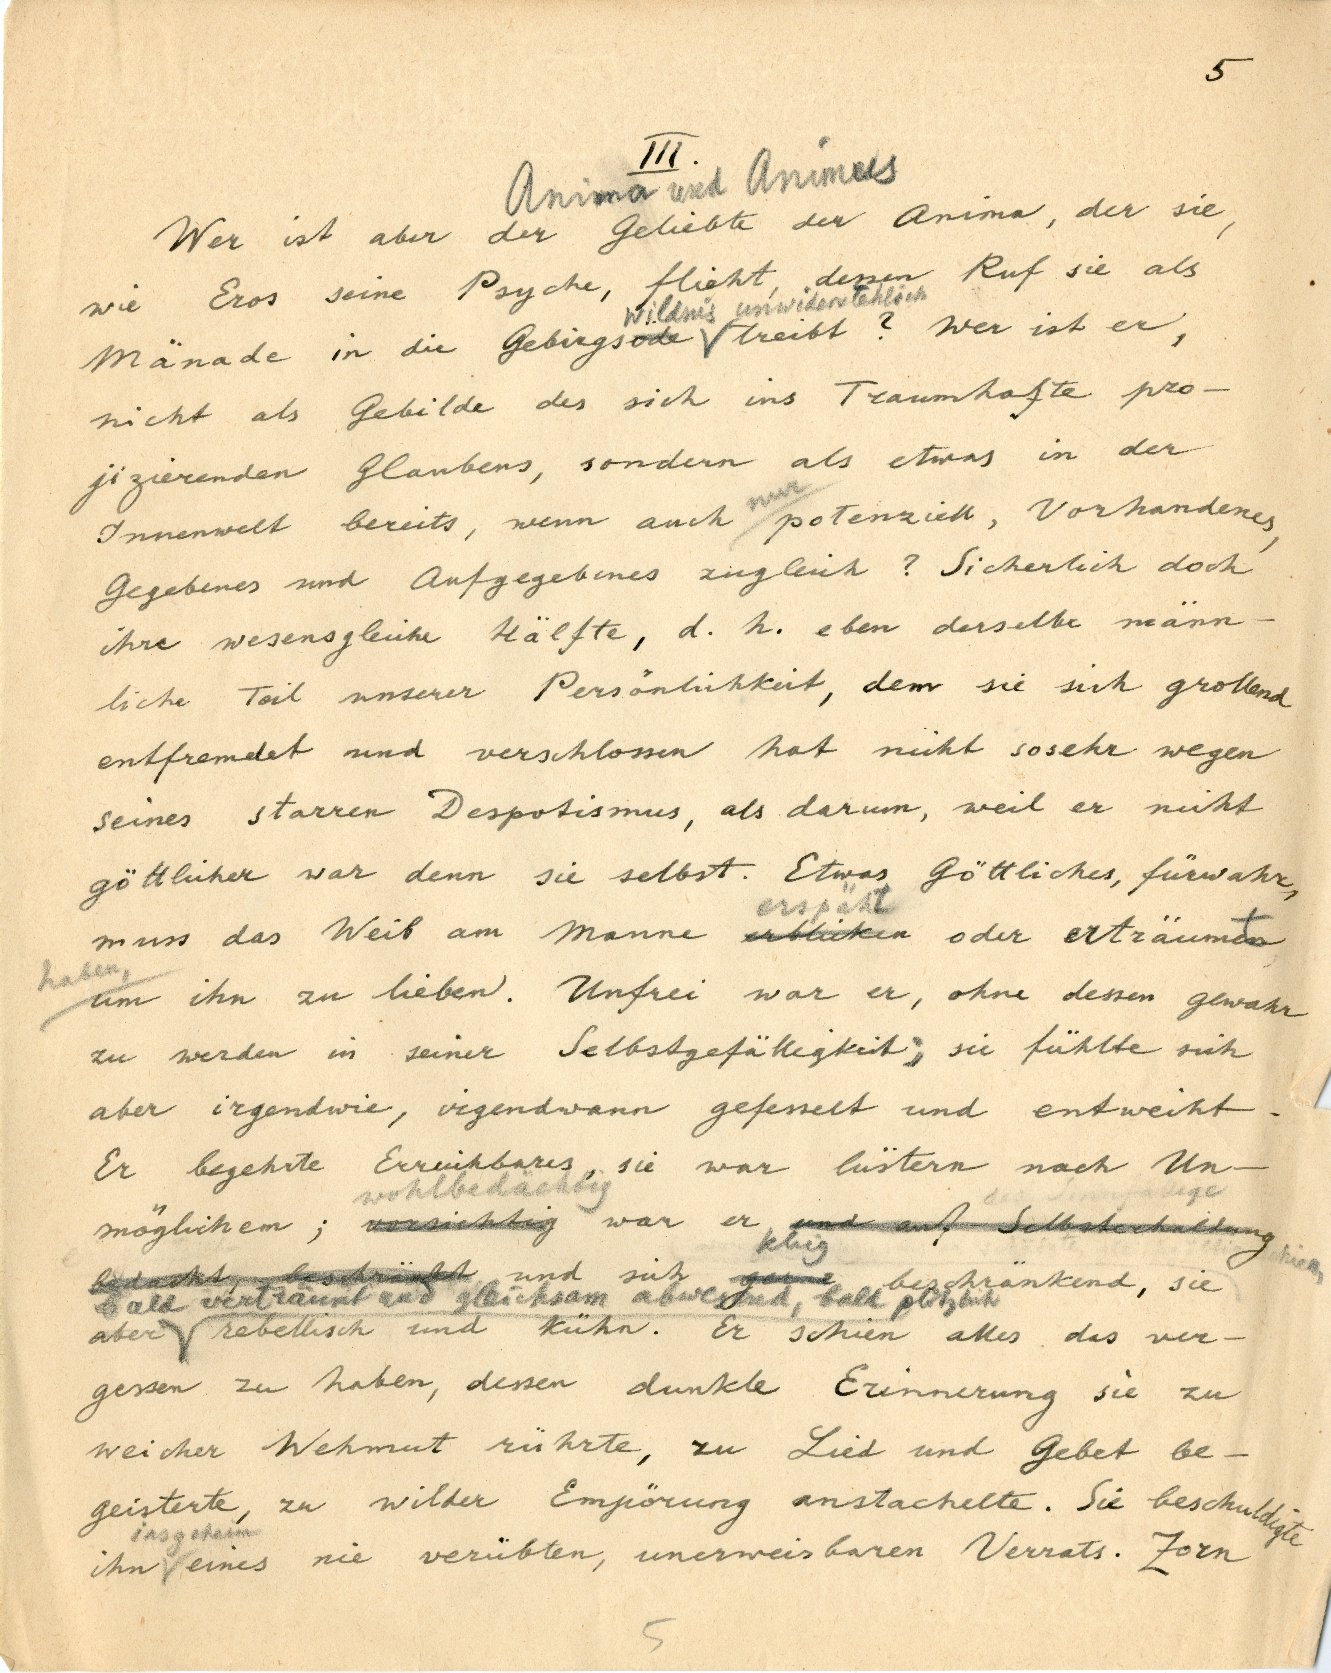 5
III.
Anima und Animus
Wer ist aber der Geliebte der Anima, der sie,
wie Eros seine Psyche, flieht, dessen Ruf sie als
wildnis unwiderstehlich
Mänade in die Gebirgsöde treibt? Wer ist er,
nicht als Gebilde des sich ins Traumhafte pro-
jizierenden Glaubens, sondern als etwas in der
nur
Innenwelt bereits, wenn auch potenziell, Vorhandenes,
Gegebenes und Aufgegebenes zugleich? Sicherlich doch
ihre wesensgleiche Hälfte, d. h. eben derselbe männ-
liche Teil unserer Persönlichkeit, dem sie sich grollend
entfremdet und verschlossen hat nicht sosehr wegen
seines starren Despotismus, als darum, weil er nicht
göttlicher war denn sie selbst. Etwas Göttliches, fürwahr,
erspäht
muss das Weib am Manne erblicken oder erträumt
haben,
um ihn zu lieben. Unfrei war er, ohne dessen gewahr
zu werden in seiner Selbstgefälligkeit; sie fühlte sich
aber irgendwie, irgendwann gefesselt und entweiht.
Er begehrte Erreichbares, sie war lüstern nach Un-
wohlbedächtig
möglichem; vorsichtig war er und auf Selbsterhaltung
klug
bedacht, beschränkt und sich gerne beschränkend, sie
bald verträumt und gleichsam abwesend, bald plötzlich
aber rebellisch und kühn. Er schien alles das ver-
gessen zu haben, dessen dunkle Erinnerung sie zu
weicher Wehmut rührte, zu Lied und Gebet be-
geisterte, zu wilder Empörung anstachelte. Sie beschuldigte
insgeheim
ihn eines nie verübten, unerweisbaren Verrats. Zorn
5